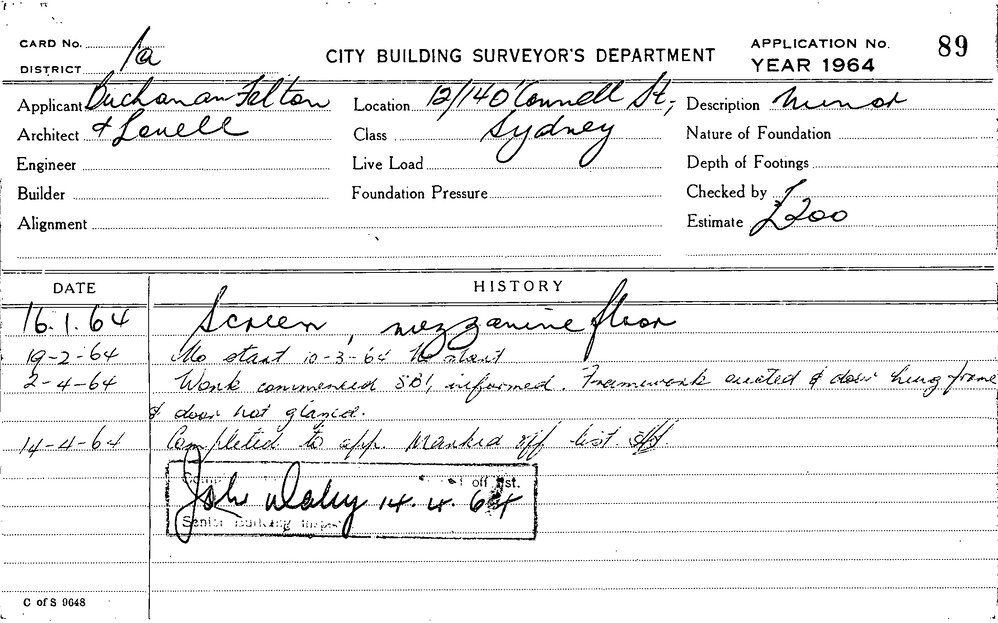 CARD No. 1a CITY BUILDING SURVEYOR'S DEPARTMENT APPLICATION No. 89
DISTRICT YEAR 1964
Applicant Buchanan Felton Location 12/14 O'Connell St, Description Minor
Architect & Lovell Class Sydney Nature of Foundation
Engineer Live Load Depth of Footings
Builder Foundation Pressure Checked by
Alignment Estimate £200
DATE HISTORY
16.1.64 Screen, mezzanine floor
19-2-64 No start 10-3-64 No start
2-4-64 Work commenced SBI, informed. Framework erected & door hung frame
& door not glazed.
14-4-64 Completed to app. Marked off list
off list.
John Daley 14.4.64
Senior Building
C of S 9648